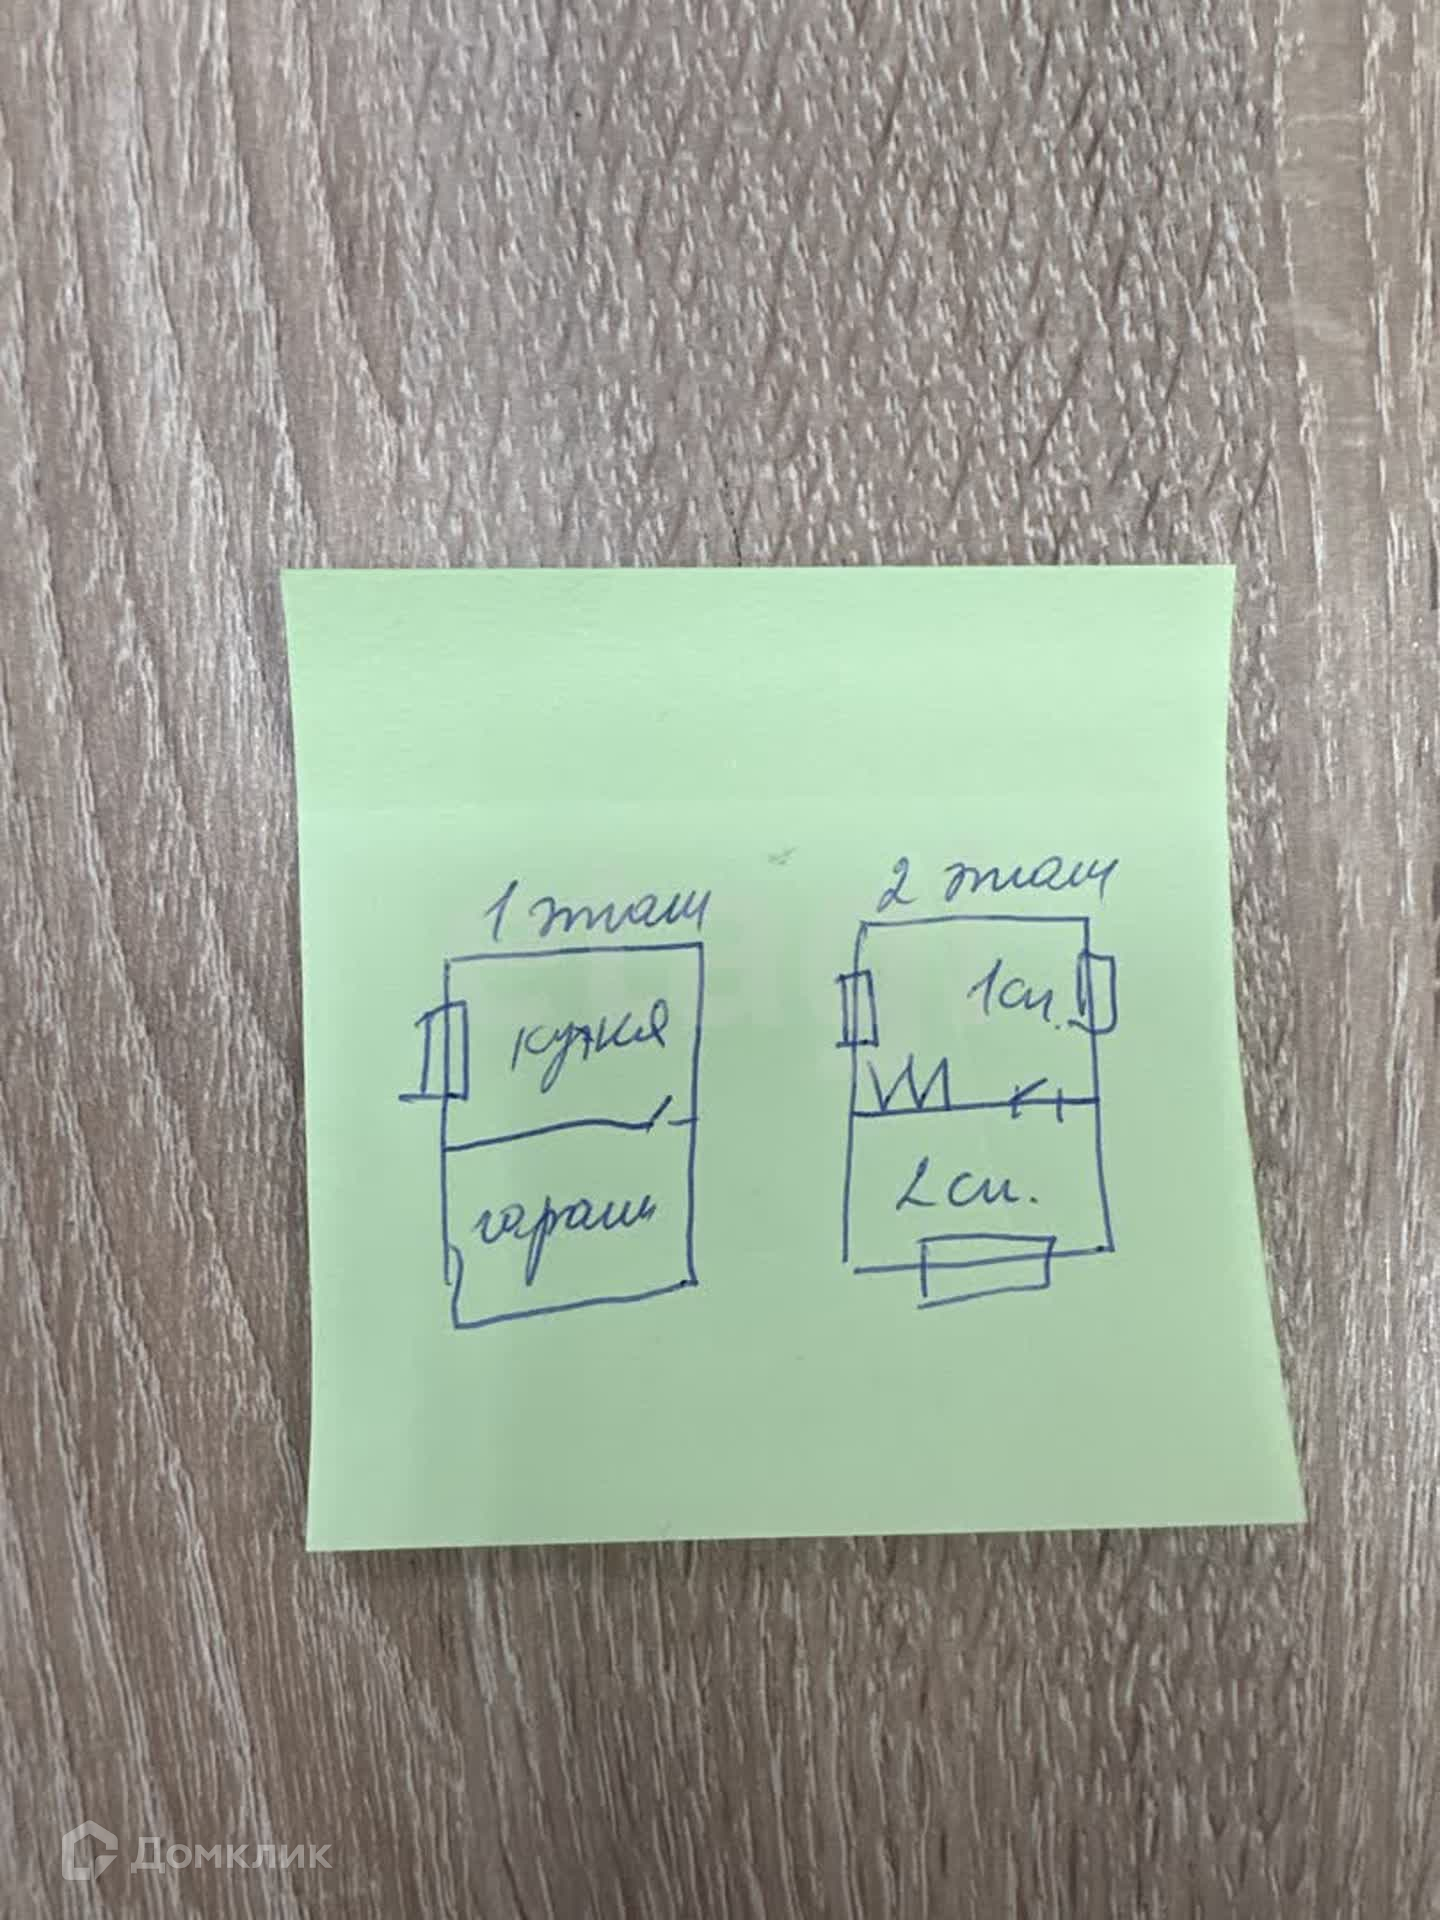 1 этаж
кухня
гараж
2 этаж
1 сп.
2 сп.
Домклик